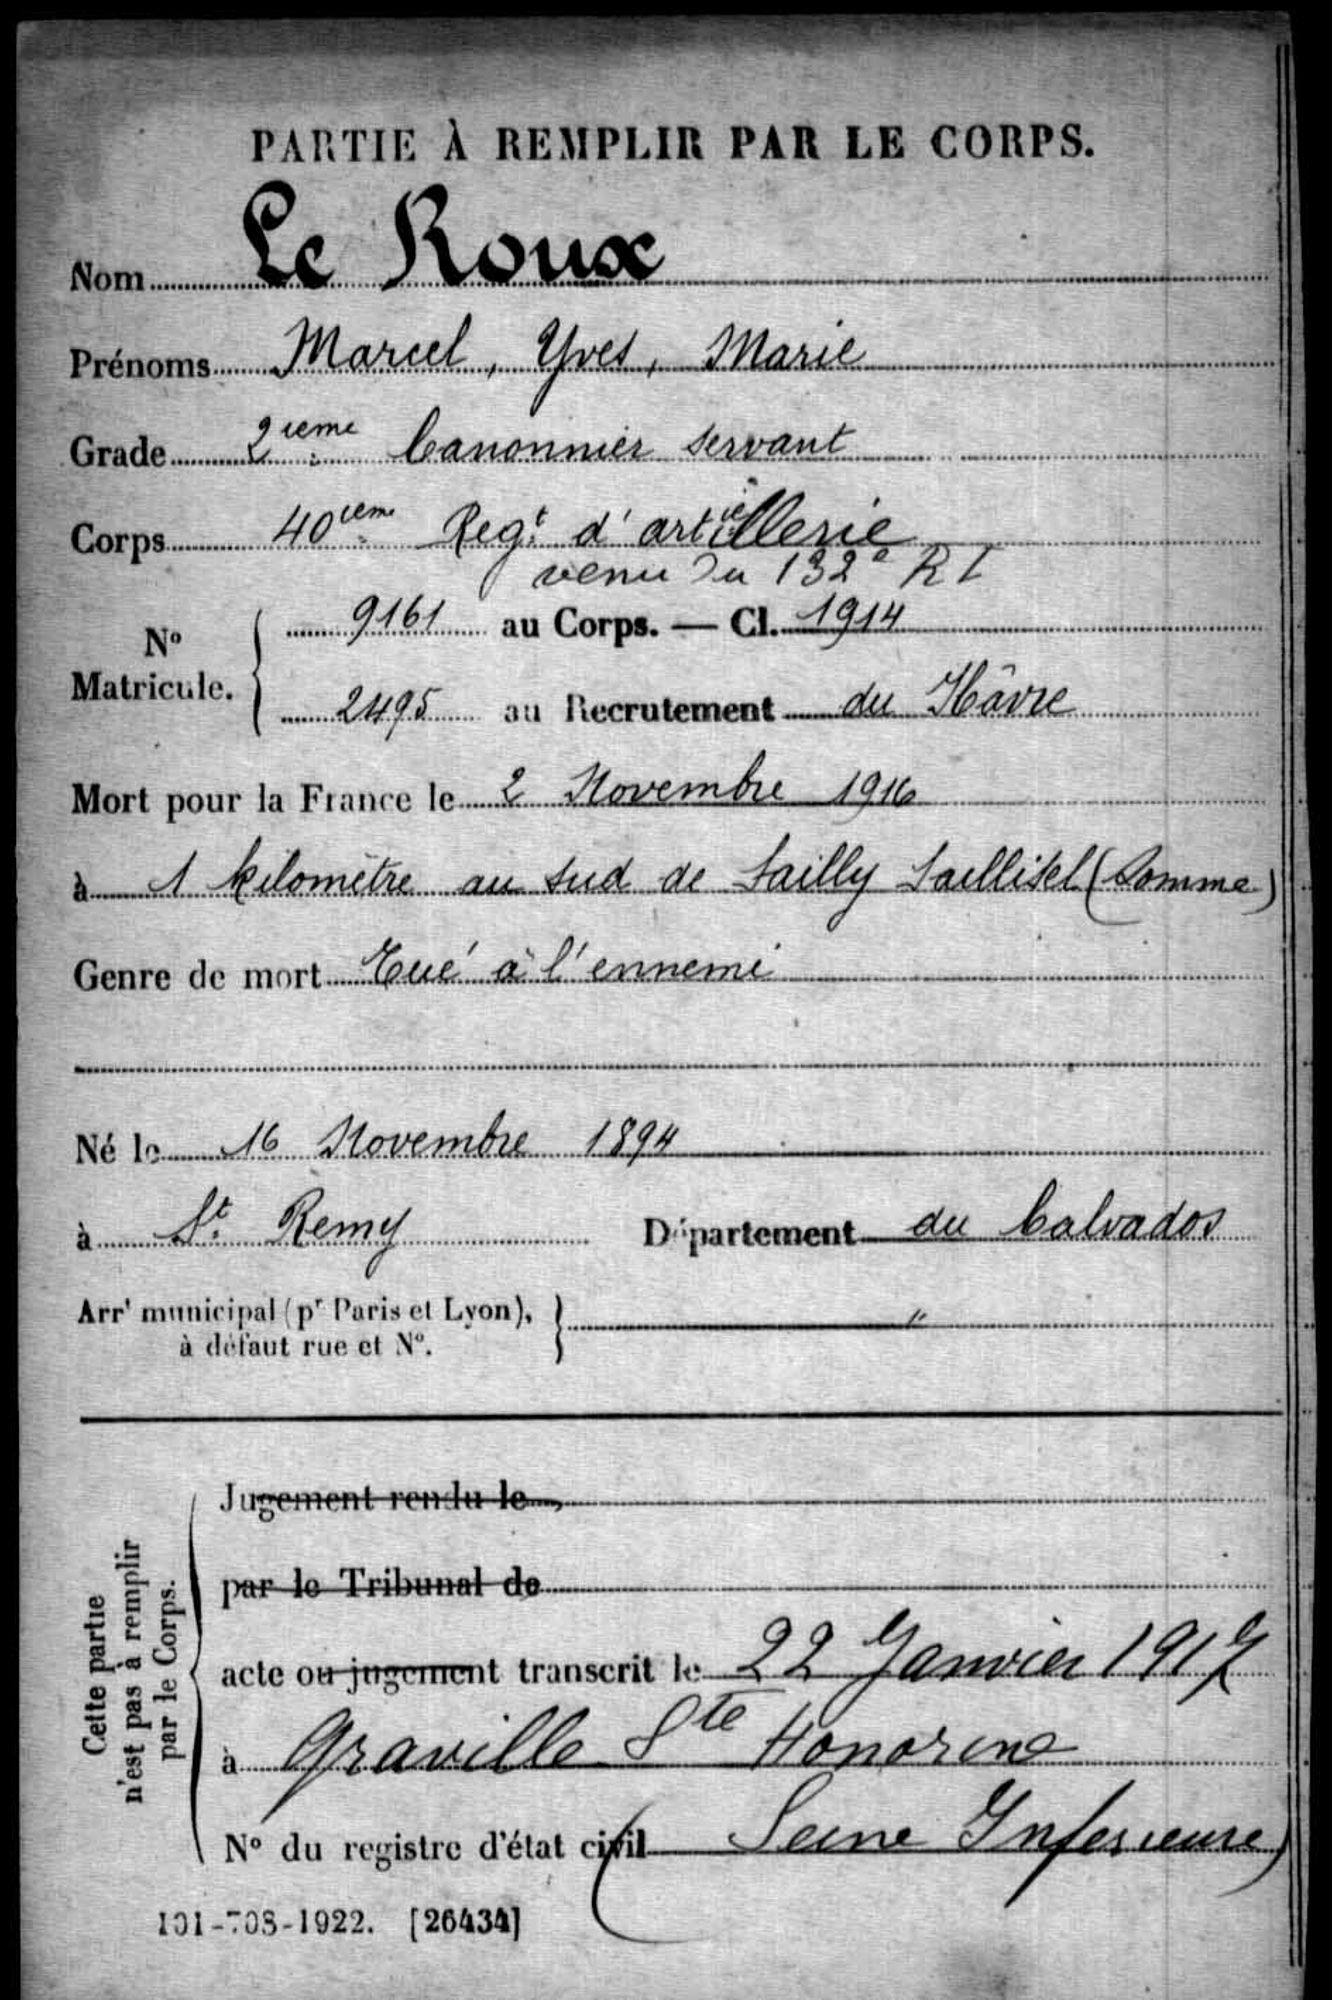 PARTIE À REMPLIR PAR LE CORPS.
Nom Le Roux
Prénoms Marcel, Yves, Marie
Grade 2ieme Canonnier servant
Corps 40ieme Regt d'artillerie
venu du 132e RI
No Matricule. 9161 au Corps. — Cl. 1914
2495 au Recrutement du Hâvre
Mort pour la France le 2 Novembre 1916
à 1 kilomètre au sud de Sailly Saillisel (Somme)
Genre de mort Tué à l'ennemi
Né le 16 Novembre 1894
à St. Remy Département du Calvados
Arrt municipal (pr Paris et Lyon), "
à défaut rue et No.
Cette partie n'est pas à remplir par le Corps.
Jugement rendu le
par le Tribunal de
acte ou jugement transcrit le 22 Janvier 1917
à Graville Ste Honorine
No du registre d'état civil (Seine Inferieure)
101-708-1922. [26434]